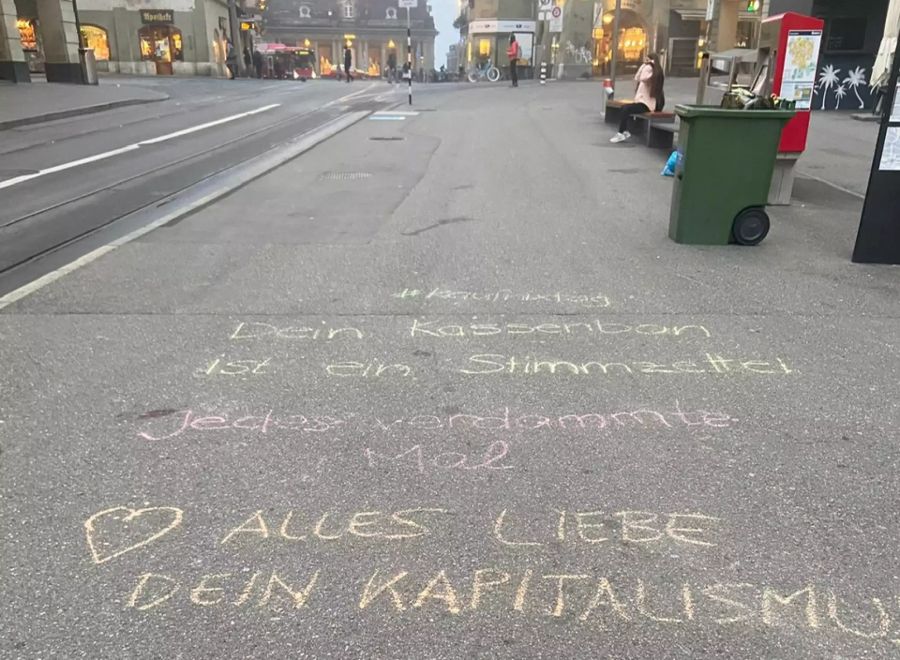 Apotheke
#Kaufnixtag
Dein Kassenbon
ist ein Stimmzettel
Jedes verdammte
Mal
ALLES LIEBE
DEIN KAPITALISMU